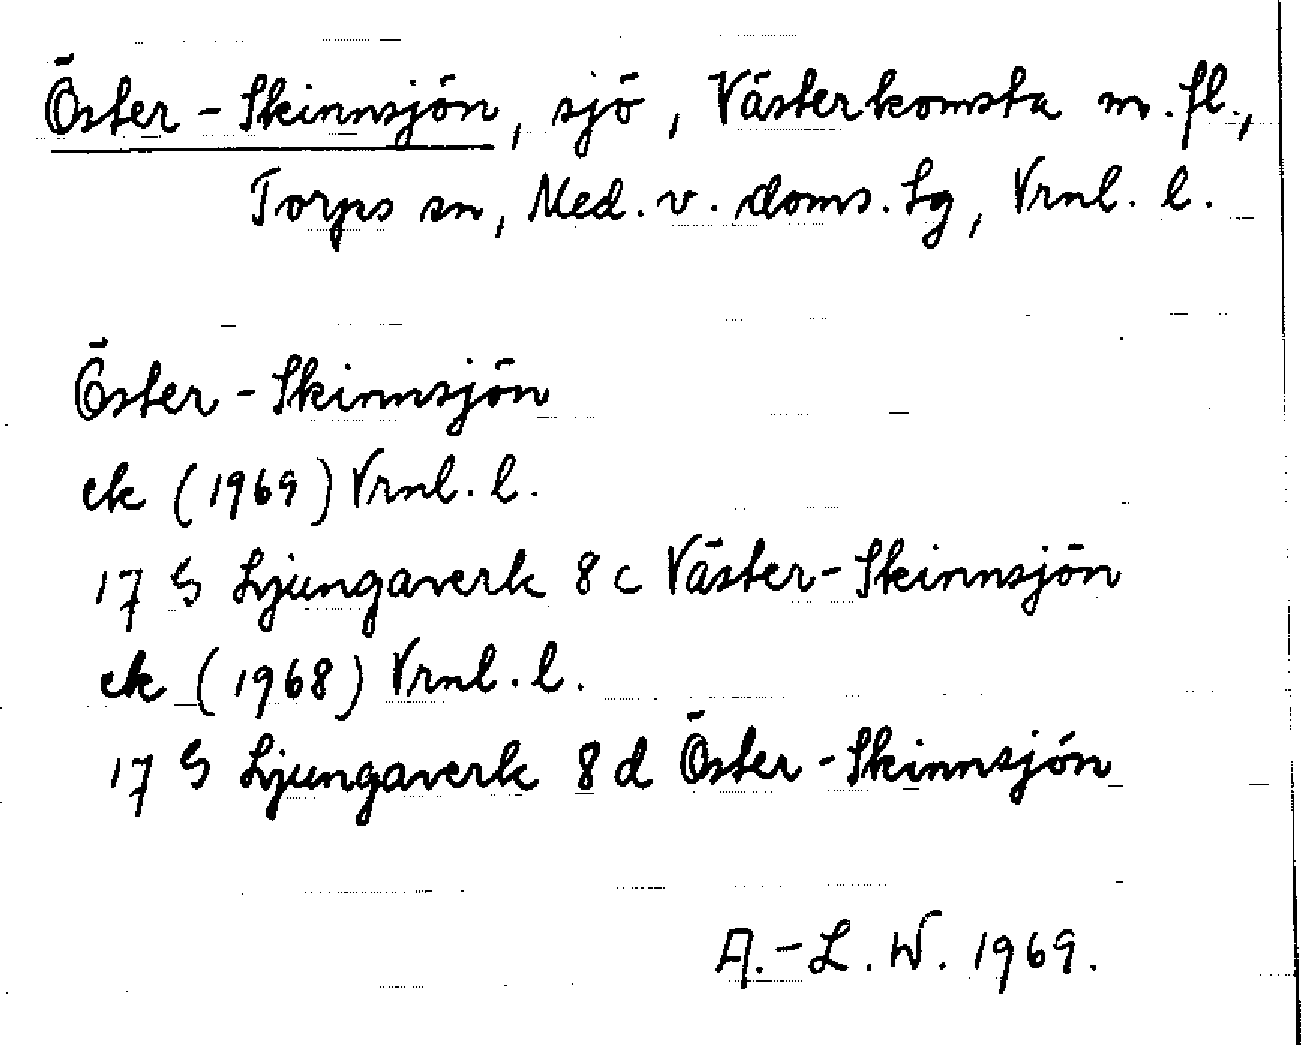 Öster-Skinnsjön, sjö, Västerkomsta m.fl.,
Torps sn, Med. v. doms. lg, Vrnl. l.
Öster-Skinnsjön
ek (1969) Vrnl. l.
17 G Ljungaverk 8 c Väster-Skinnsjön
ek (1968) Vrnl. l.
17 G Ljungaverk 8 d Öster-Skinnsjön
A.-L. W. 1969.